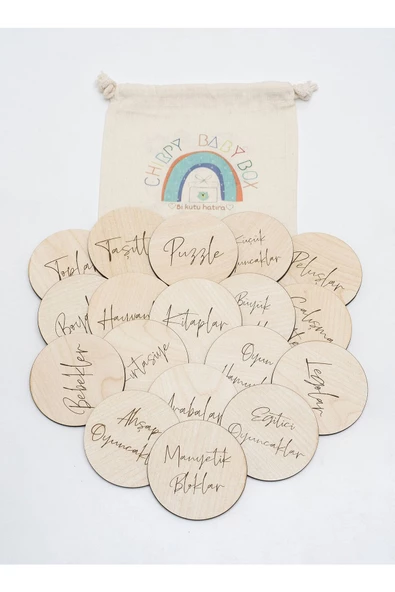 CHIPPY BABY BOX
Bi kutu hatıra
Toplar
Taşıtl
Puzzle
Küçük
yuncaklar
Peluşlar
Boya
Hayvan
Kitaplar
Büyük
Çalışma
Bebekler
ırtasiye
Oyun
Hamur
Legolar
Arabalar
Ahşap
Oyuncakl
Eğitici
Oyuncaklar
Manyetik
Bloklar